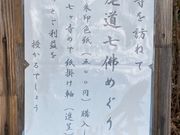 寺を訪ねて
尾道七佛めぐり
朱印色紙(五〇〇円)購入
七ヶ寺めぐ 紙掛け軸(進呈
とご利益を
授かるでしょう